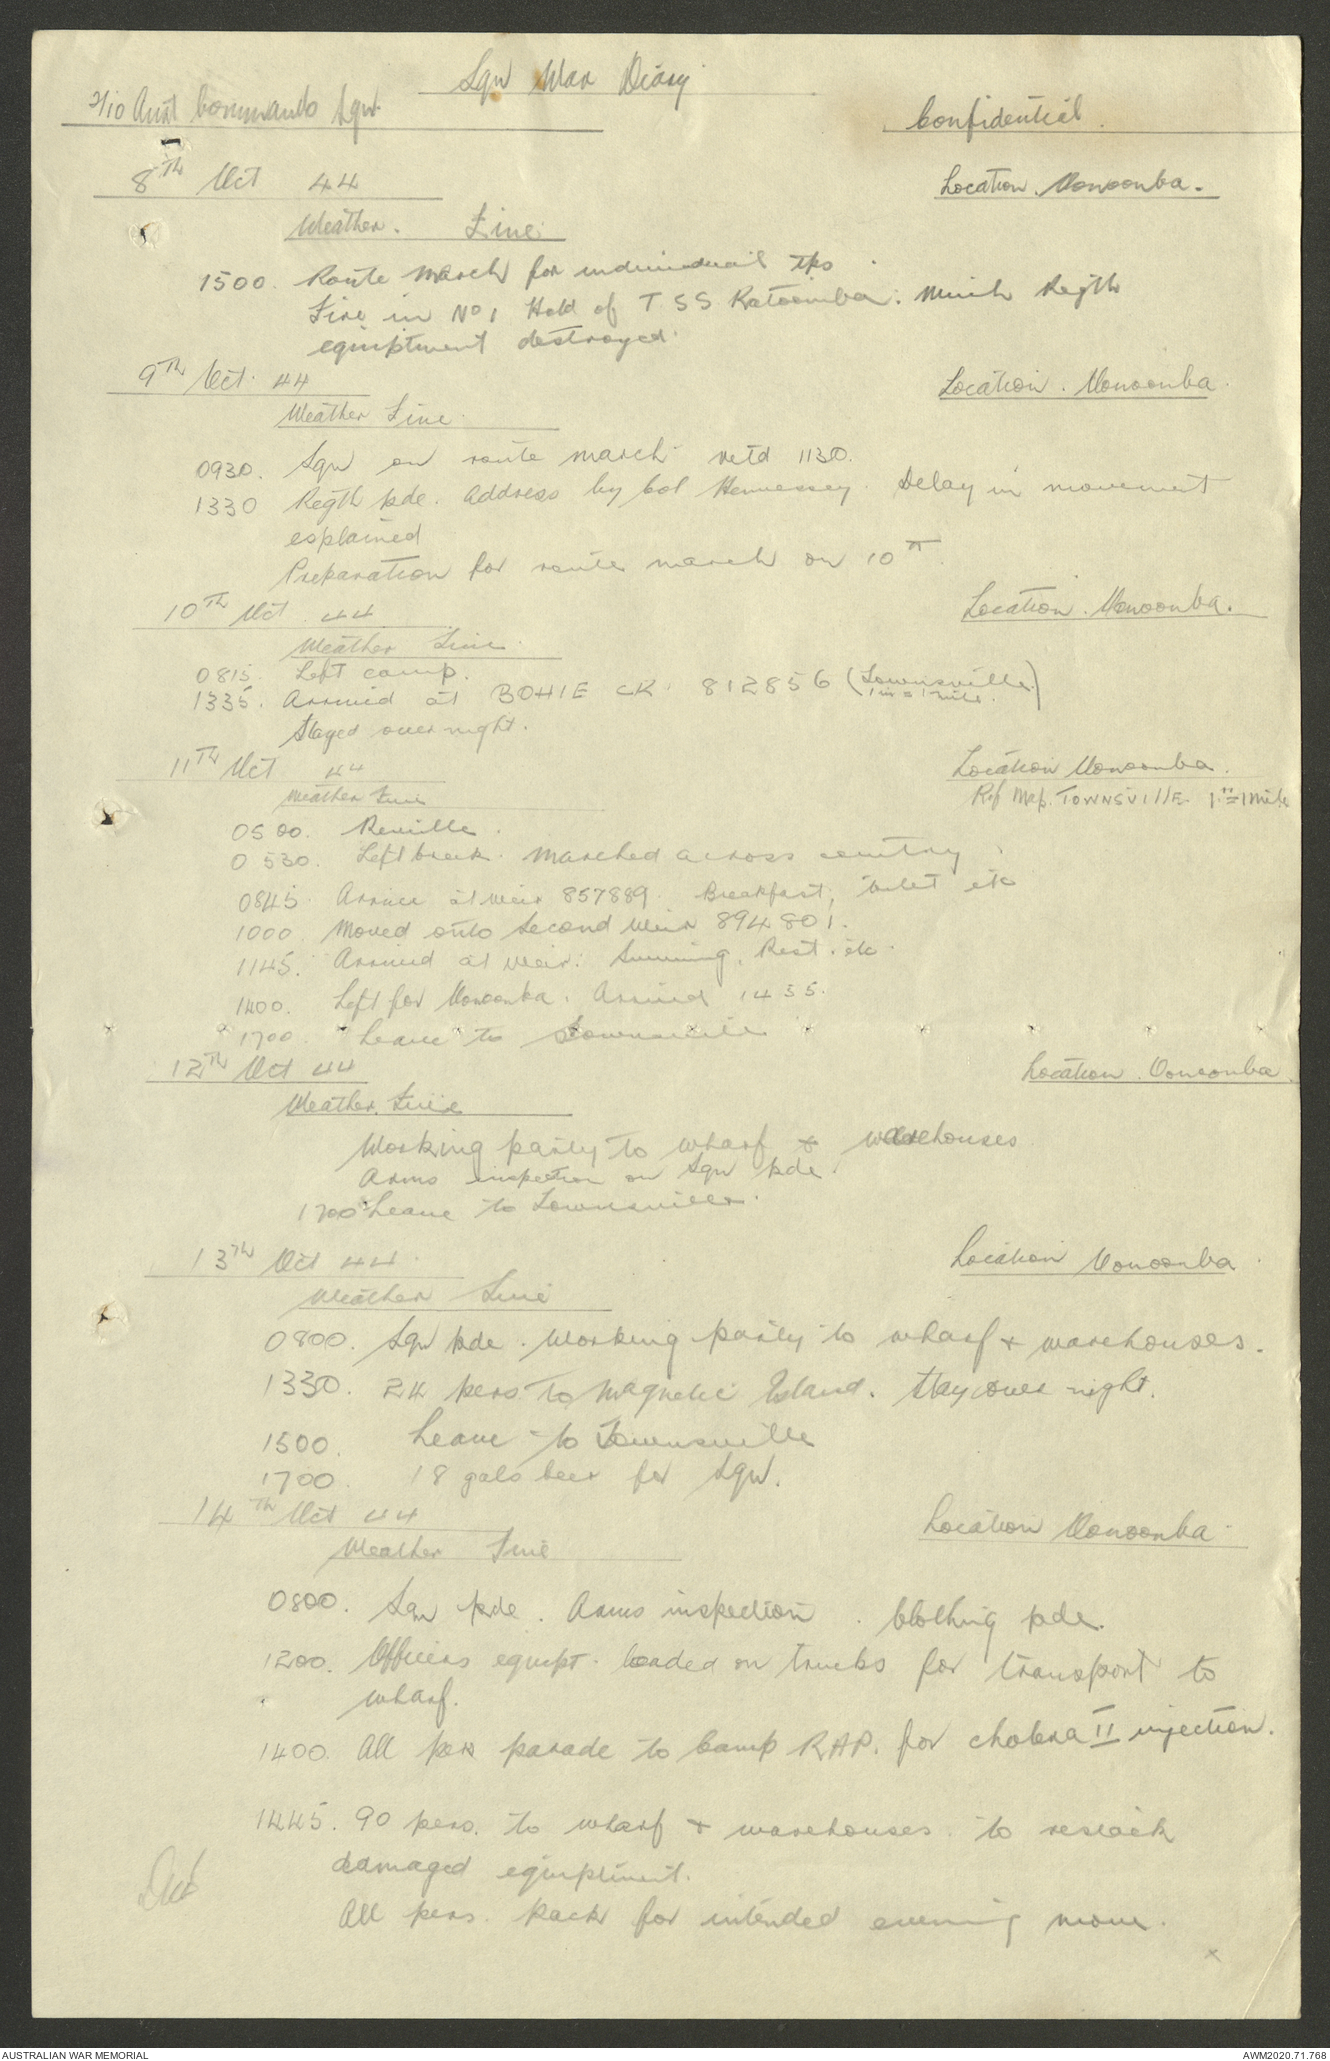 Sqn War Diary
2/10 Aust Commando Sqn
Confidential.
8TH Oct 44
Location. Oonoonba.
Weather. Fine.
1500. Route march for individual tps.
Fire in No 1 Hold of T S S Katoomba. Much Regtl
equiptment destroyed.
9TH Oct. 44
Location. Oonoonba.
Weather Fine.
0930. Sqn on route march. retd 1130.
1330 Regtl pde. Address by Col Hennessey. Delay in movement
explained
Preparation for route march on 10TH.
10TH Oct. 44
Location. Oonoonba.
Weather Fine.
0815. Left camp.
1335. Arrived at BOHLE CK. 812856 (Townsville 1in = 1 mile.)
Stayed over night.
11TH Oct 44
Location Oonoonba.
Ref Map. TOWNSVILLE. 1"=1 Mile
Weather Fine
0500. Reveille.
0530. Left break. Marched across country.
0845. Arrive at weir 857889. Breakfast, etc
1000. Moved onto second weir 894801.
1145. Arrived at weir. Swimming, Rest. etc.
1400. Left for Oonoonba. Arrived 1435.
1700. Leave to Townsville
12TH Oct 44
Location. Oonoonba
Weather. Fine
Working party to wharf + warehouses
Arms inspection on Sqn pde.
1700 Leave to Townsville.
13TH Oct 44.
Location Oonoonba.
Weather Fine
0800. Sqn pde. Working party to wharf + warehouses.
1330. 24 pers to Magnetic Island. Stay over night.
1500. Leave to Townsville
1700. 18 gals beer for Sqn.
14TH Oct 44
Location Oonoonba.
Weather Fine
0800. Sqn pde. Arms inspection. Clothing pde.
1200. Officers equipt. loaded on trucks for transport to
wharf.
1400. All pers parade to Camp RAP. for cholera II injection.
1445. 90 pers. to wharf + warehouses. to restack
damaged equiptment.
All pers. pack for intended evening move.
AUSTRALIAN WAR MEMORIAL
AWM2020.71.768